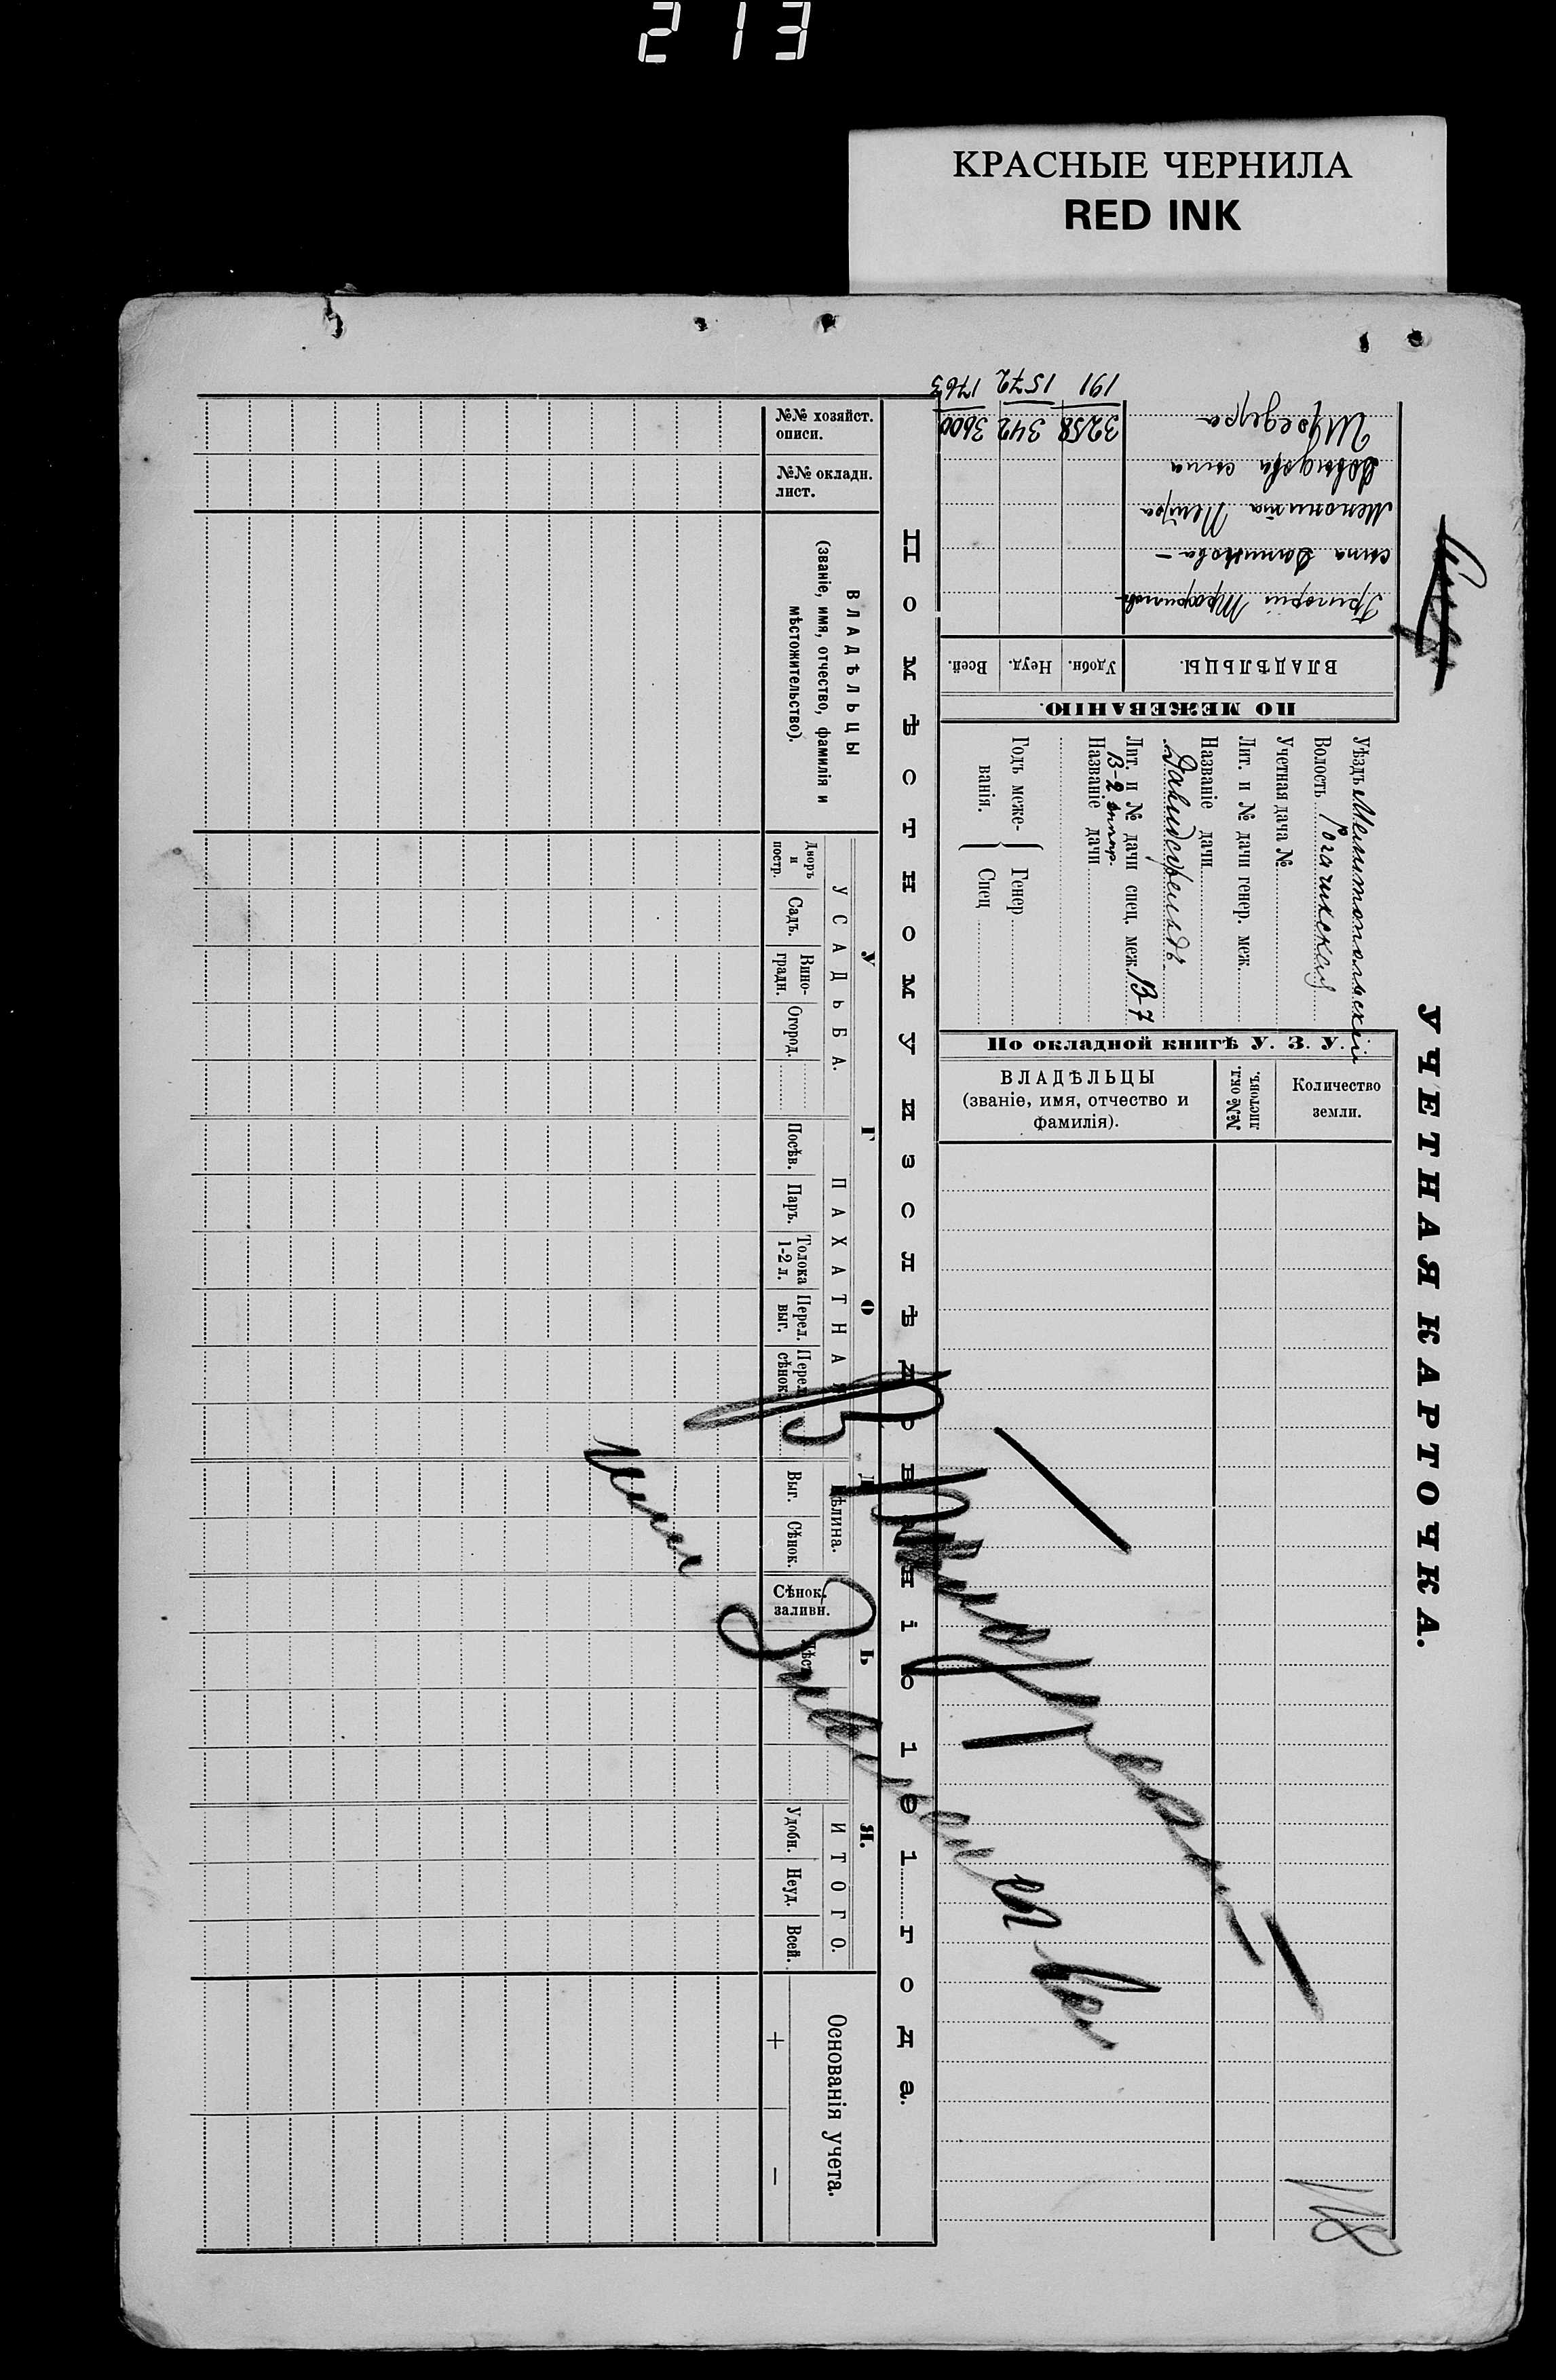 213
КРАСНЫЕ ЧЕРНИЛА
RED INK
УЧЕТНАЯ КАРТОЧКА.
Уѣздъ Мелитопольскій
Волость Рогачикская
Учетная дача №
Лит. и № дачи генер. меж.
Названіе дачи
Давидсфельдъ
Лит. и № дачи спец. меж. В-7
В-2
Названіе дачи
Годъ меже-
ванія.
Генер
Спец
ПО МЕЖЕВАНІЮ.
ВЛАДѢЛЬЦЫ.
Удобн.
Неуд.
Всей.
Григорій
сына
Менонита Петра
Давыдова сына
Шредера
3258 342 3600
191 1572 1763
По окладной книгѣ У. З. У.
ВЛАДѢЛЬЦЫ
(званіе, имя, отчество и
фамилія).
№№ окл.
листовъ.
Количество
земли.
118
Помѣстному изслѣдованію 1901 года.
№№ хозяйст.
описи.
№№ окладн.
лист.
ВЛАДѢЛЬЦЫ
(званіе, имя, отчество, фамилія и
мѣстожительство).
УГОДЬЯ.
УСАДЬБА.
Дворъ
и
постр.
Садъ.
Вино-
градн.
Огород.
ПАХАТНАЯ
Посѣв.
Паръ.
Толока
1-2 л.
Перел.
выг.
Перел.
сѣнок.
Цѣлина.
Выг.
Сѣнок.
Сѣнок.
заливн.
ИТОГО.
Удобн.
Неуд.
Всей.
Основанія учета.
+
−